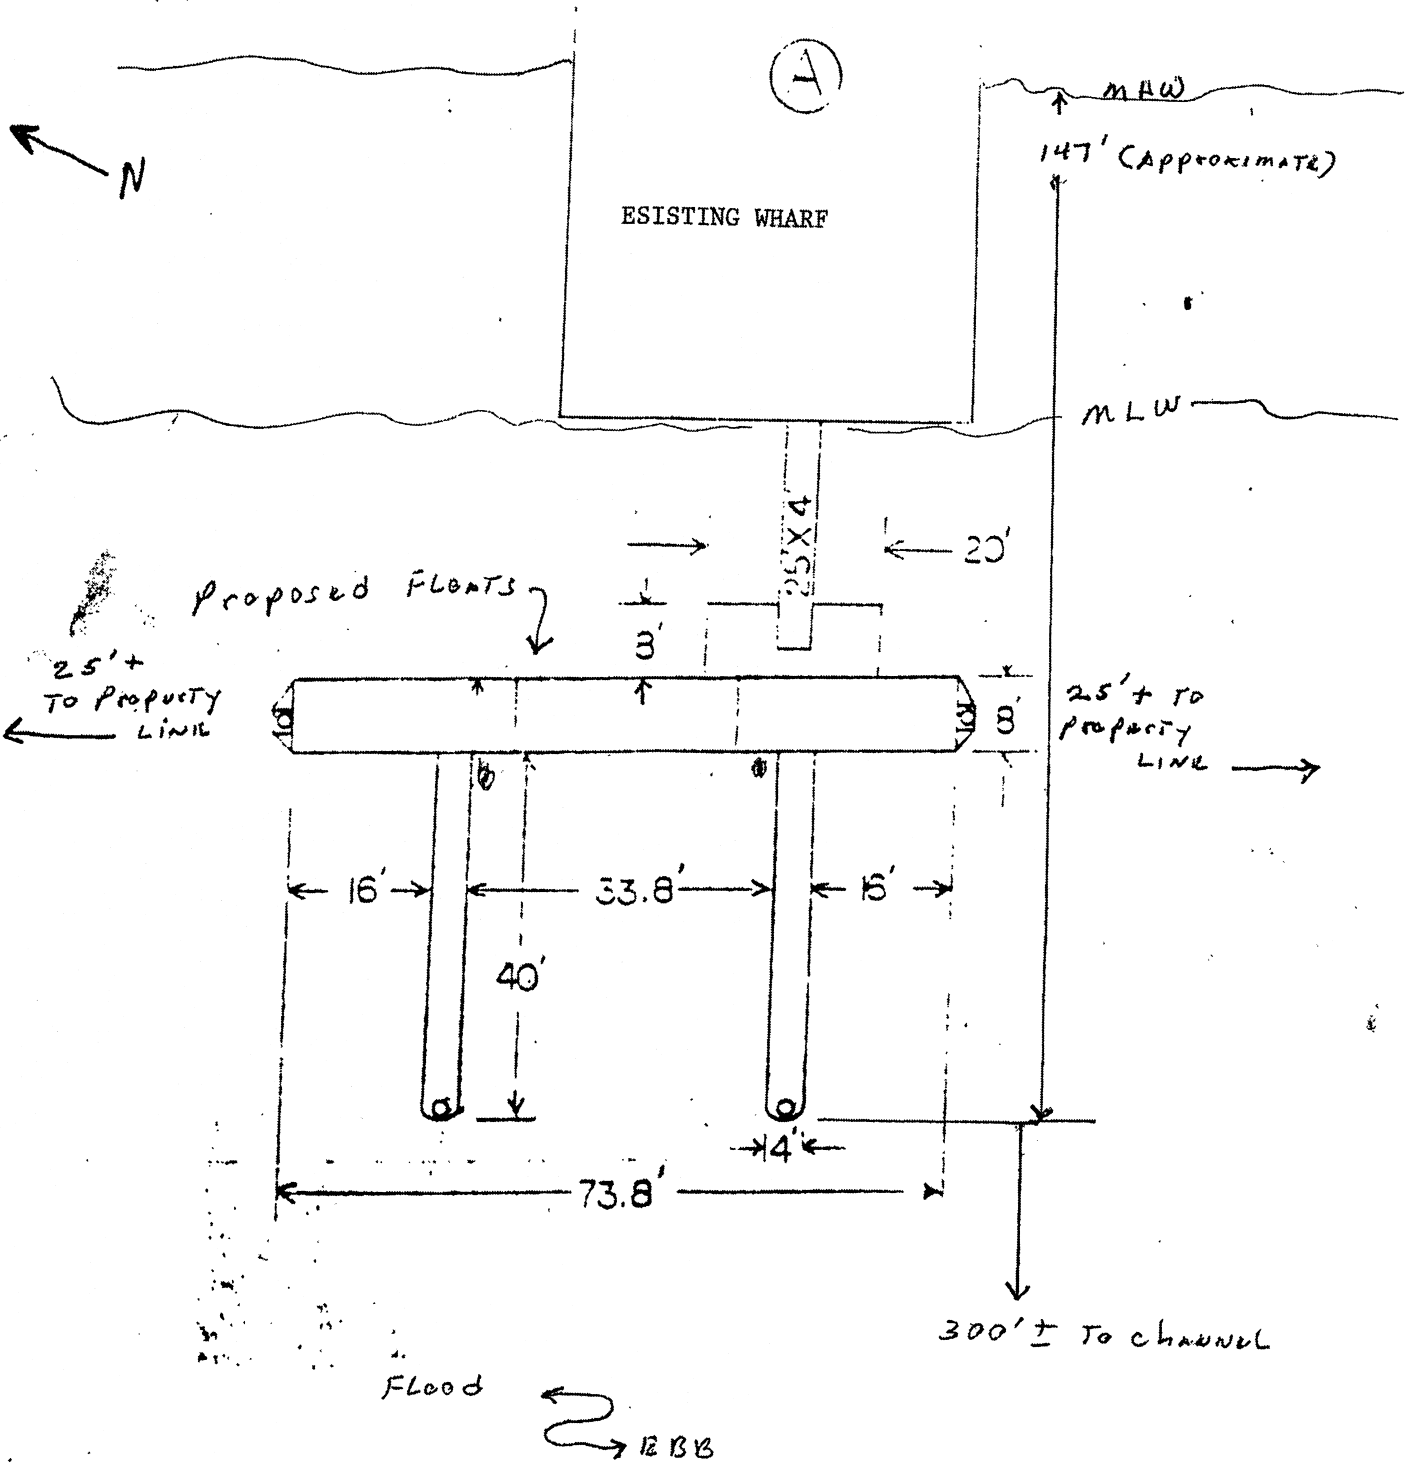 A
MHW
147' (APPROXIMATE)
N
ESISTING WHARF
MLW
25' X 4'
20'
Proposed FLOATS
8'
25'+
TO Property
LINE
8'
25'+ TO
Property
LINE
16'
33.8'
16'
40'
4'
73.8'
300' ± TO CHANNEL
FLood
EBB